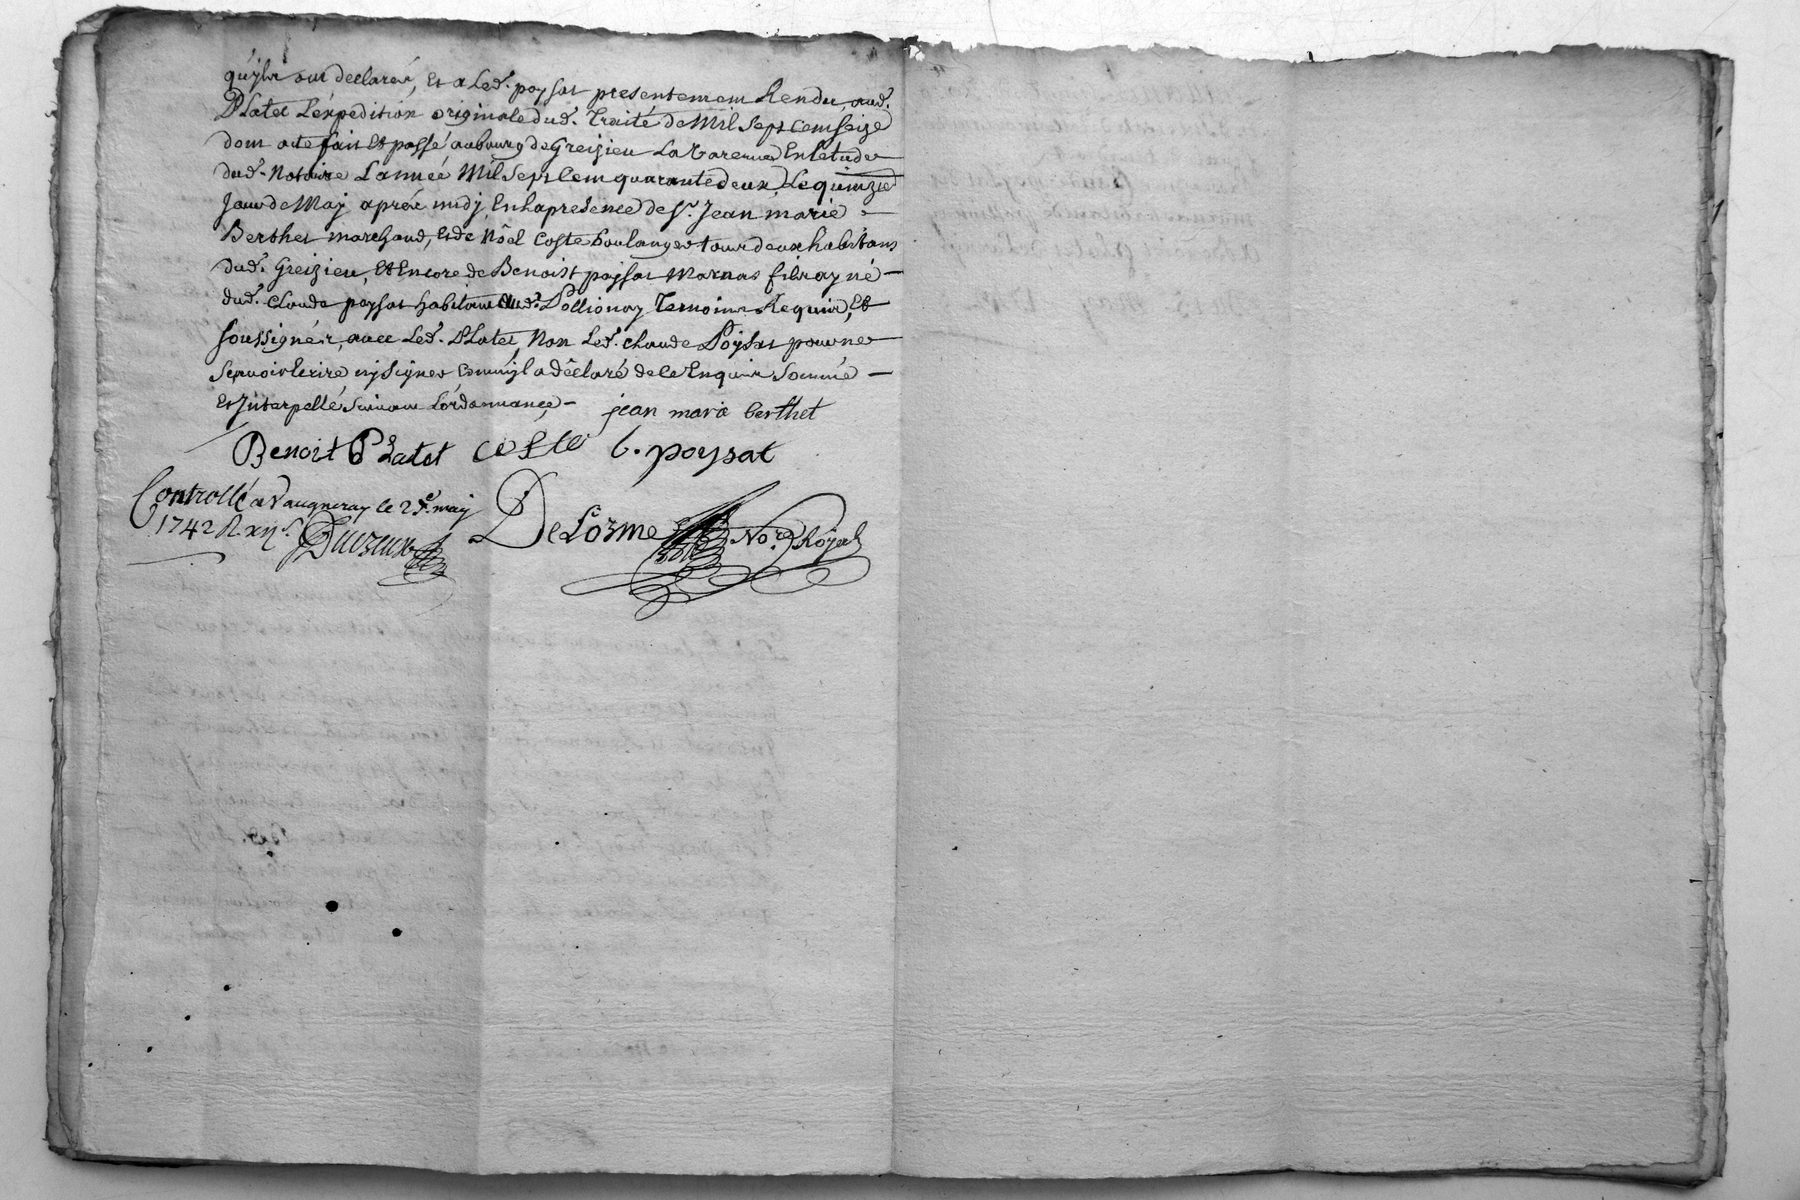 qu'ylz ont declarée, Et a Led. poysat presentement Rendu aud.
Platet L'expedition originale dud. traité de Mil Sept Cent seize
dont acte fait Et passé au bourg de Greizieu La Varenne En l'etude
dud. Notaire L'année Mil Sept Cent quarante deux, Le quinzie
Jour de May aprés midy, En la presence de Sr. Jean marie
Berthet marchand, et de Nôel Coste boulanger tous deux habitans
dud. Greizieu, Et Encore de Benoist poysat Marnas fils ayné
dud. Claude poysat habitant aud. Pollionay Temoins Requis, Et
soussignés, avec Led. Platet, Non Led. Claude Poysat pour ne
sçavoir Ecrire ny signer Comm'yl a déclaré de ce Enquis Sommé
Et Jnterpellé suivant L'ordonnance
jean marie berthet
Benoit Platet coste b. poysat
Controllé a Vaugneray le 25e. may
1742 R. xijs.
DeLorme No.re Royal